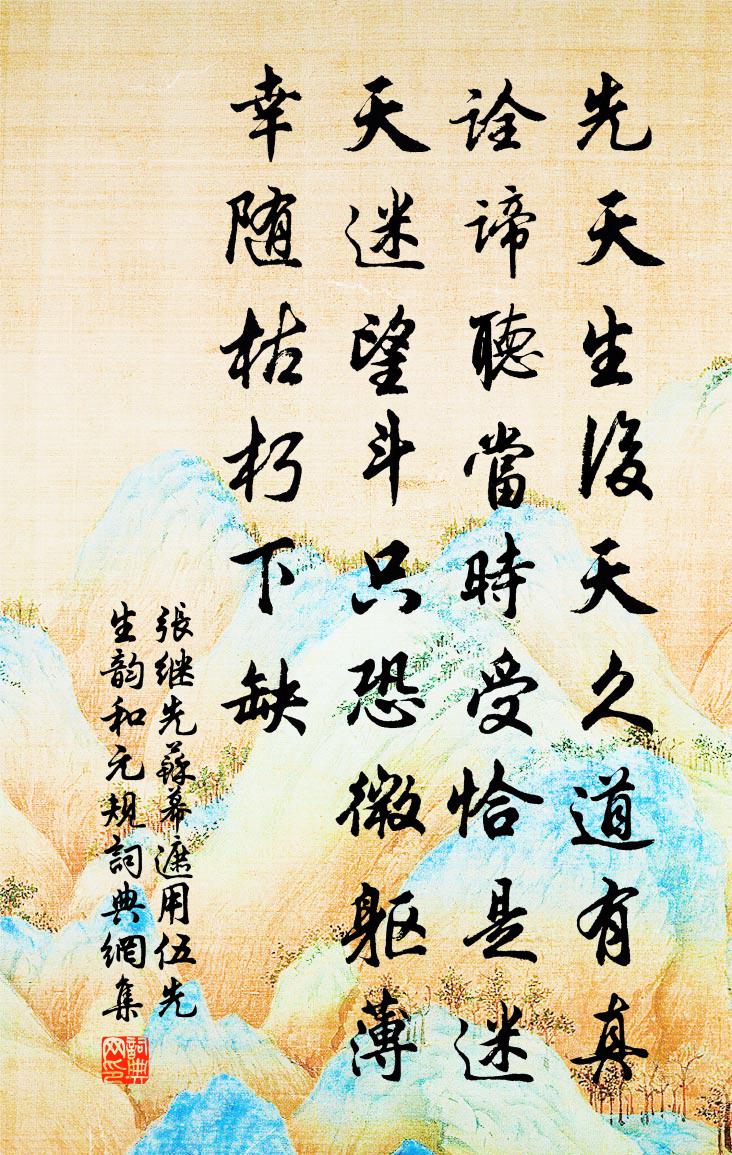 先天生後天久道有真
詮諦聽當時受恰是迷
天迷望斗只恐微軀薄
幸随枯朽下缺
張继先蘇幕遮用伍先
生韵和元規詞典網集
詞典網印